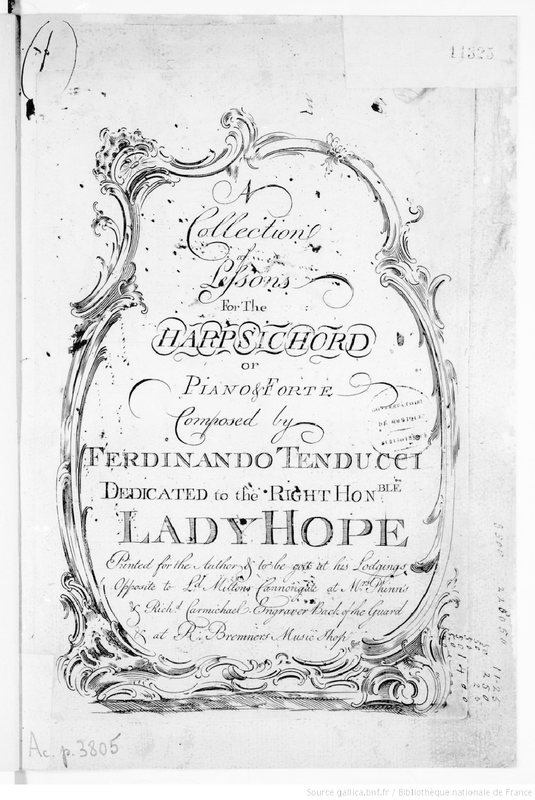 11325
A
Collection
of
Lessons
For The
HARPSICHORD
or
PIANO & FORTE
Composed by
FERDINANDO TENDUCCI
DEDICATED to the RIGHT HON.BLE
LADY HOPE
Printed for the Author & to be got at his Lodgings
Opposite to Ld Miltons Cannongate at Mrs
& Richd Carmichael Engraver Back of the Guard
& at R. Bremners Music Shop
DE MUSIQUE
Ac. p. 3805
Source gallica.bnf.fr / Bibliothèque nationale de France